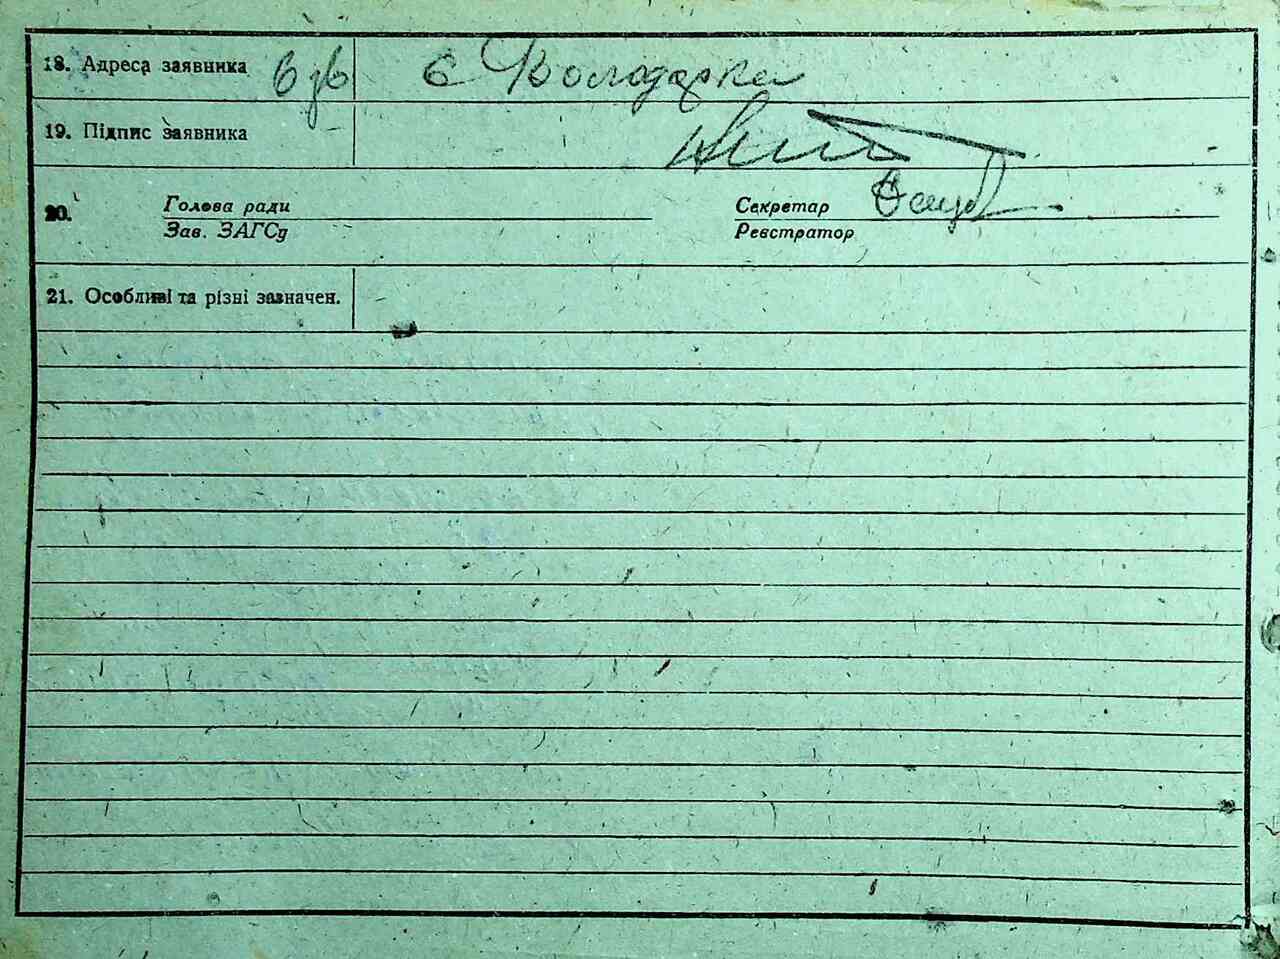 18. Адреса заявника с Володарка
19. Підпис заявника
20. Голова ради Секретар
Зав. ЗАГСд Реєстратор
21. Особливі та різні зазначен.